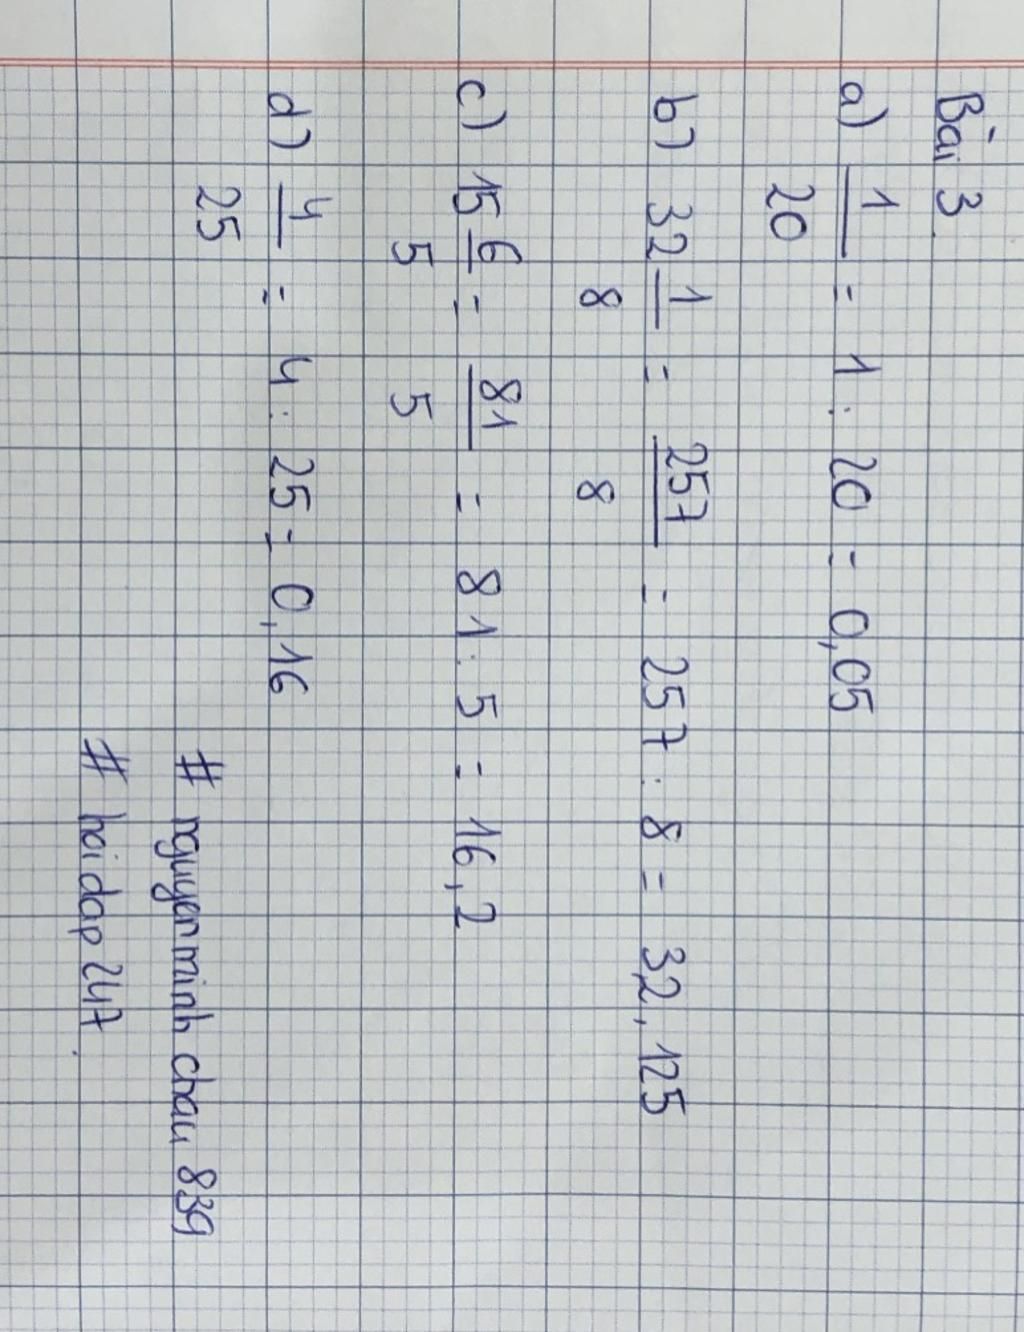 Bài 3
a) 1/20 = 1 : 20 = 0,05
b) 32 1/8 = 257/8 = 257 : 8 = 32,125
c) 15 6/5 = 81/5 = 81 : 5 = 16,2
d) 4/25 = 4 : 25 = 0,16
# nguyenminhchau839
# hoidap247.